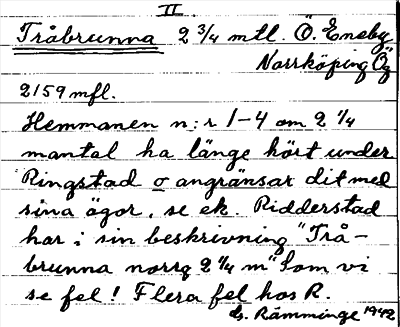 II
Tråbrunna 2 3/4 mtl. Ö. Eneby
Norrköping Ög
2159 mfl.
Hemmanen n:r 1-4 om 2 1/4
mantal ha länge hört under
Ringstad o angränsar dit med
sina ägor, se ek. Ridderstad
har i sin beskrivning "Trå-
brunna norrg 2 1/4 m" Som vi
se fel! Flera fel hos R.
ds. Rämminge 1942